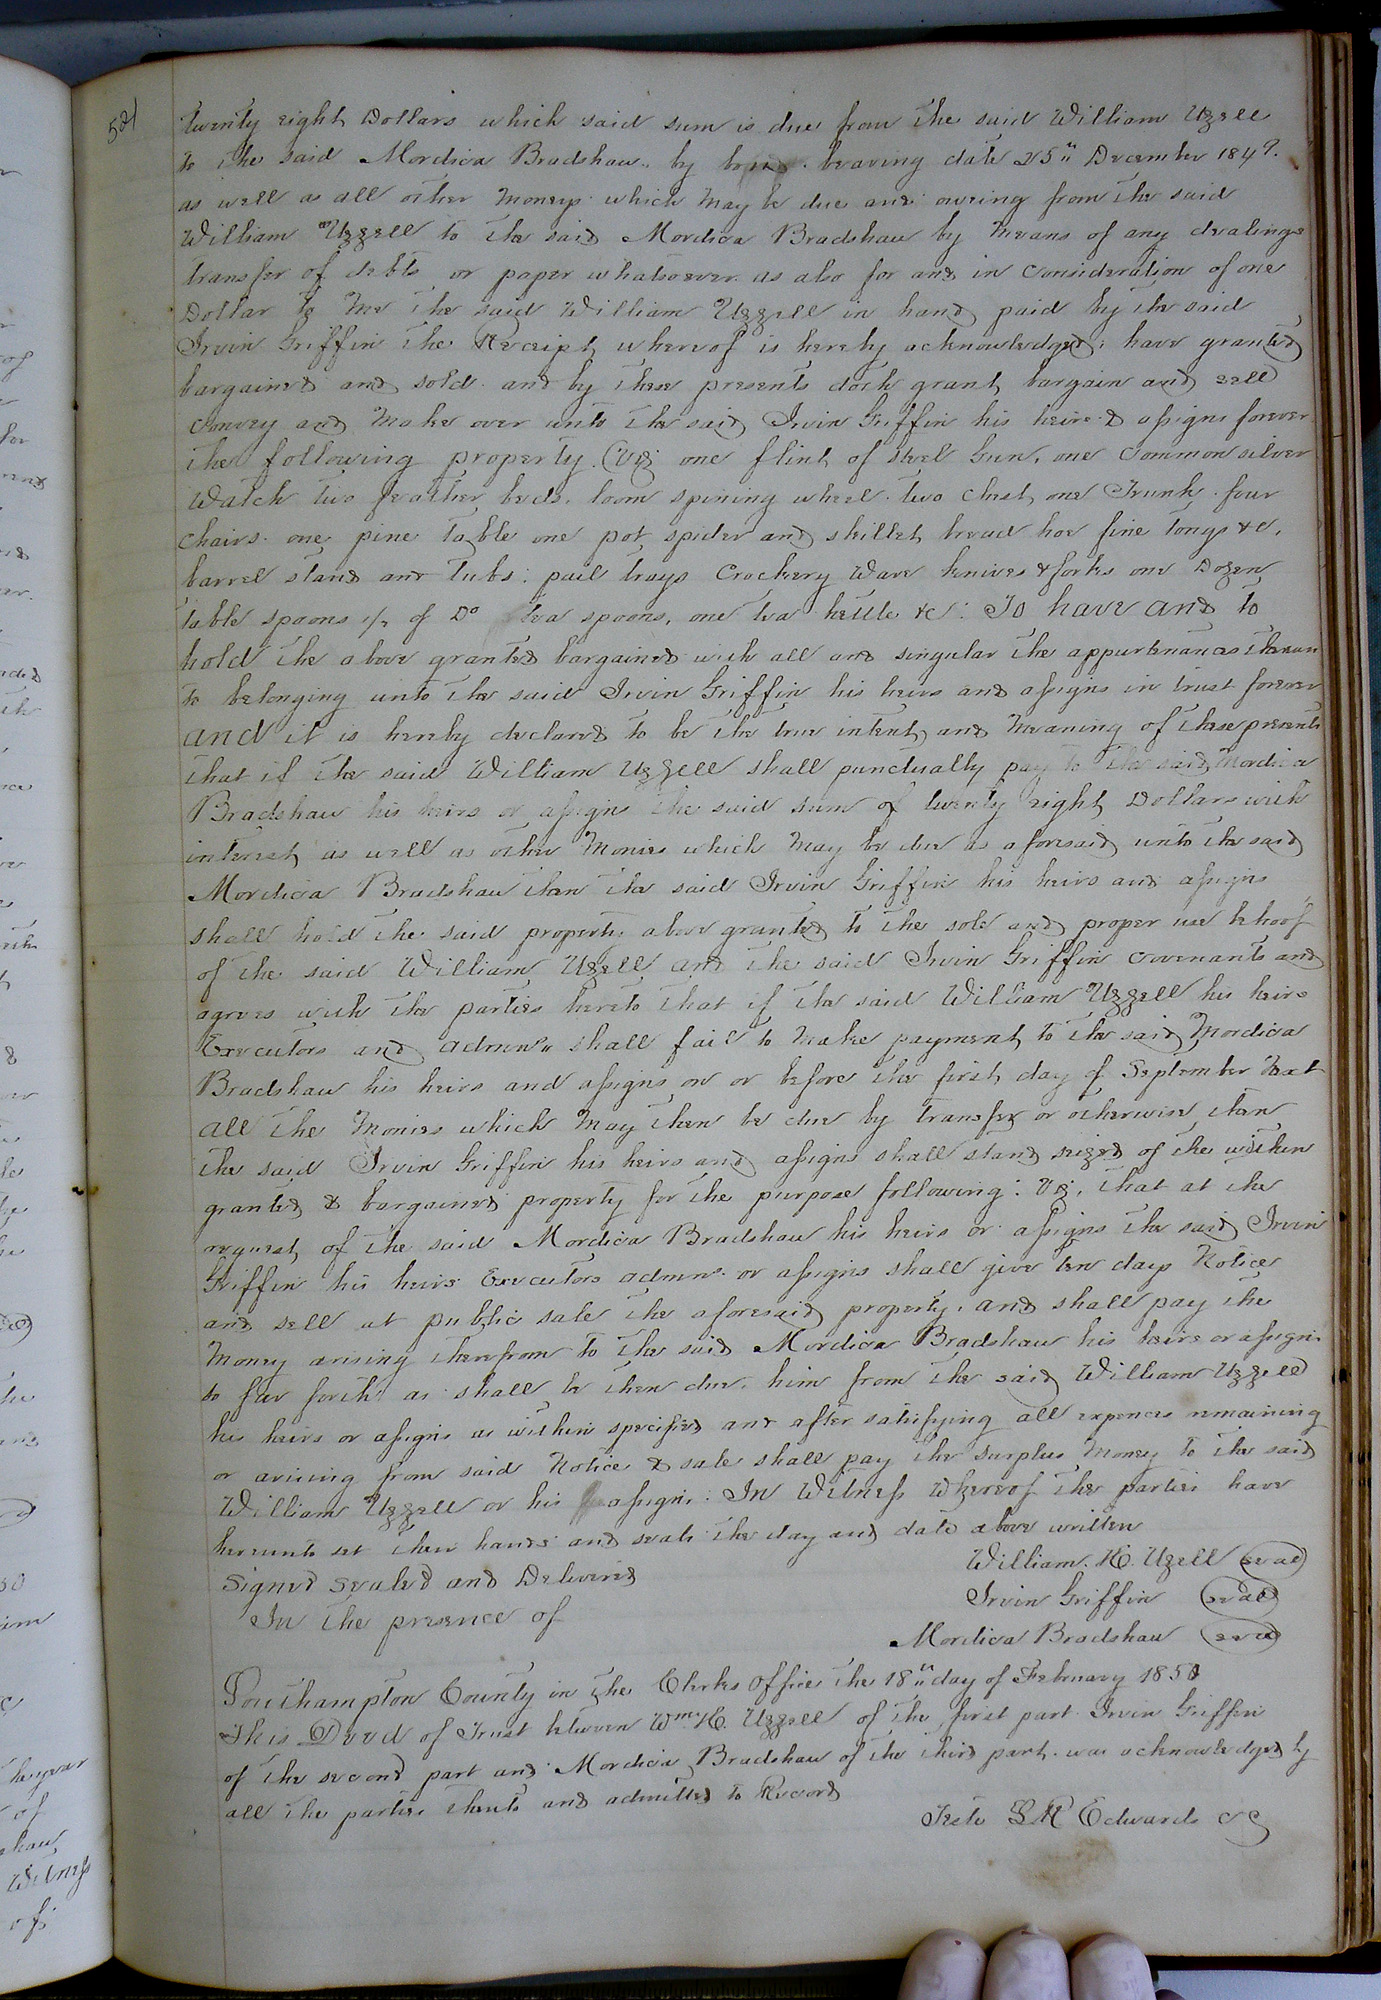 521
Twenty eight Dollars which said sum is due from the said William Uzzell
to the said Mordica Bradshaw. by bond. bearing date 25" December 1849.
as well as all other moneys which may be due and owering from the said
William Uzzell to the said Mordica Bradshaw by means of any dealings
transfer of debts or paper whatsoever as also for and in Consideration of one
Dollar to me the said William Uzzell in hand paid by the said
Irvin Griffin the Receipt whereof is hereby acknowledged; have granted
bargained and sold and by these presents doth grant bargain and sell
Convey and make over unto the said Irvin Griffin his heirs & assigns forever
the following property. (Viz one flint of steel Gun, one Common silver
Watch two feather beds. loom spining wheel. two chest, one Trunk. four
chairs. one pine table one pot spider and skillet bread hoe fine tongs &c.
barrel stand and Tubs: pail trays Crockery Ware knives & forks one Dozen
table spoons 1/2 of Do tea spoons, one tea kettle &c: To have and to
hold the above granted bargained with all and singular the appurtenances thereun
to belonging unto the said Irvin Griffin his heirs and assigns in trust forever
and it is hereby declared to be the true intent and meaning of these presents
that if the said William Uzzell shall punctually pay to the said Mordica
Bradshaw his heirs or assigns the said sum of twenty eight Dollars with
interest as well as other Monies which may be due as aforesaid unto the said
Mordica Bradshaw then the said Irvin Griffin his heirs and assigns
shall hold the said property above granted to the sole and proper use behoof
of the said William Uzell and the said Irvin Griffin covenants and
agrees with the parties hereto that if the said William Uzzell his heirs
Executors and admns" shall fail to make payment to the said Mordica
Bradshaw his heirs and assigns on or before the first day of September Next
all the Monies which may then be due by transfer or otherwise then
the said Irvin Griffin his heirs and assigns shall stand seized of the within
granted & bargained property for the purpose following: Viz. that at the
request of the said Mordica Bradshaw his heirs or assigns the said Irvin
Griffin his heirs Executors admns. or assigns shall give ten days Notice
and sell at public sale the aforesaid property. and shall pay the
Money arising therefrom to the said Mordica Bradshaw his heirs or assigns
so far forth as shall be then due him from the said William Uzzell
his heirs or assigns as within specified and after satisfying all expences remaining
or arising from said Notice & sale shall pay the surplus money to the said
William Uzzell or his assigns: In Witness Whereof the parties have
hereunto set their hands and seals the day and date above written
Signed Sealed and Delivered
In the presence of
William. H. Uzell seal
Irvin Griffin seal
Mordica Bradshaw seal
Southampton County in the Clerks Office the 18th day of February 1850
This Deed of Trust between Wm. H. Uzzell of the first part Irvin Griffin
of the second part and Mordica Bradshaw of the third part. was acknowledged by
all the parties thereto and admitted to Record
Teste L R Edwards CC